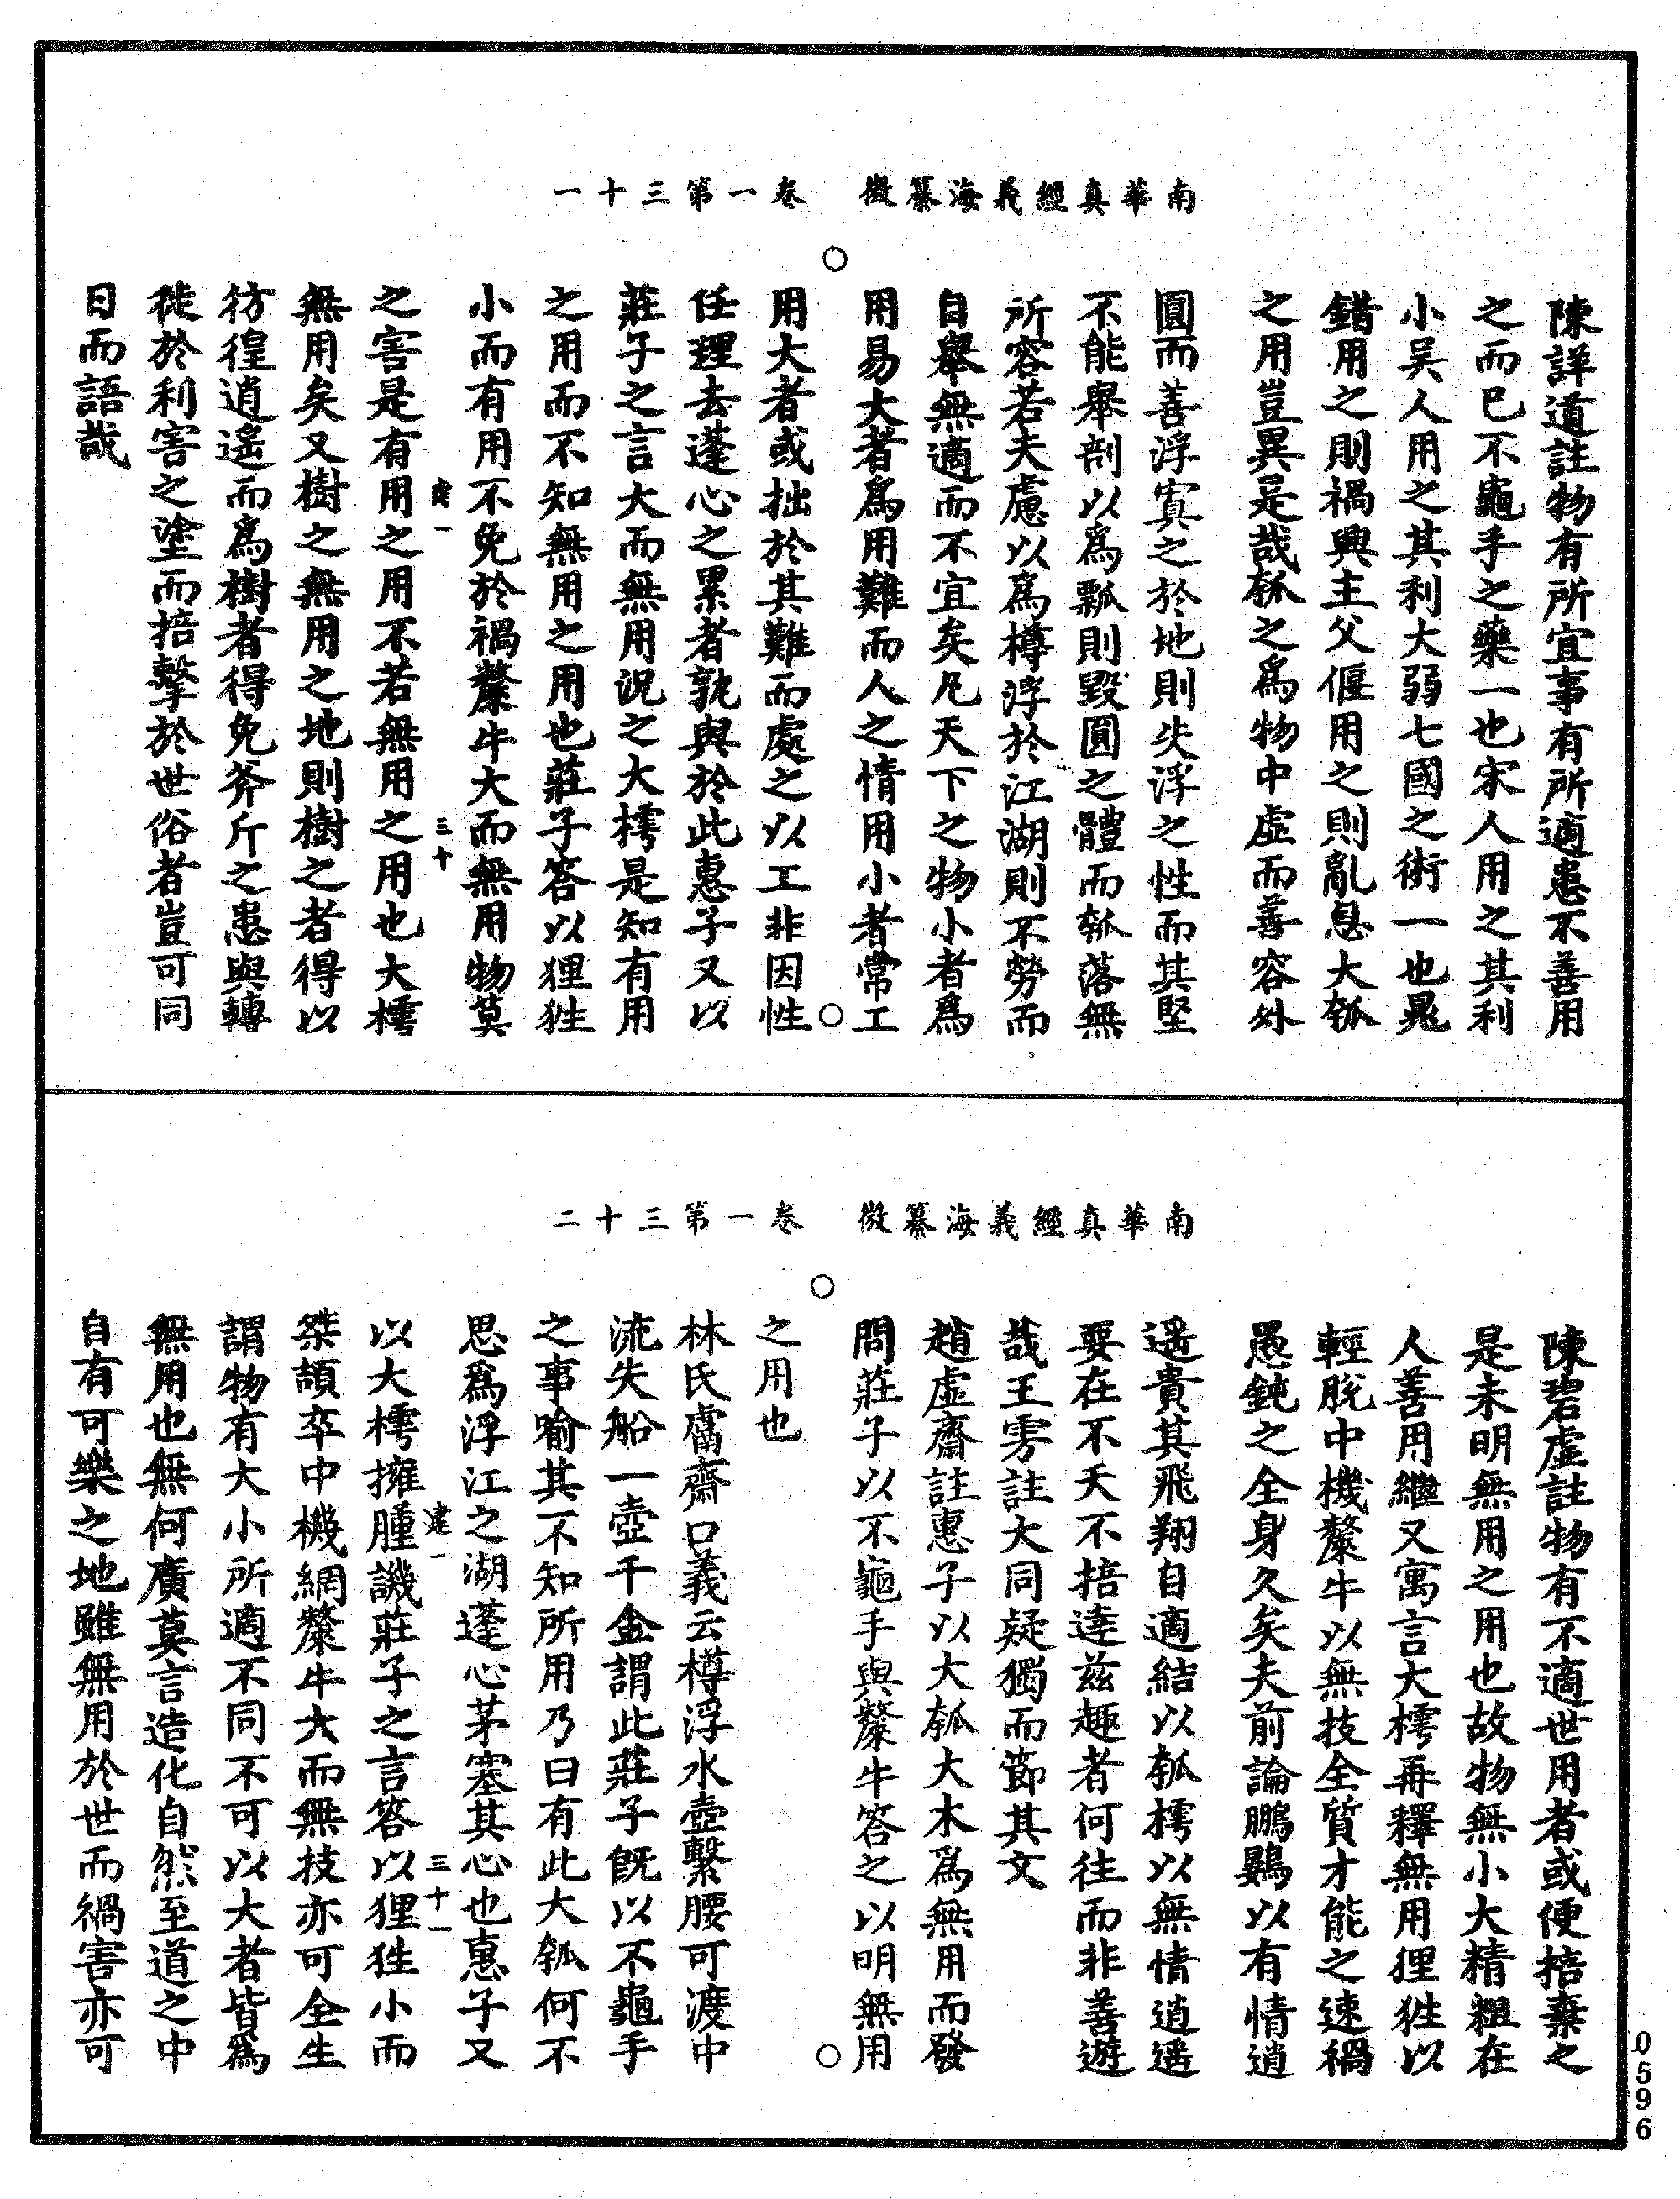 南華真經義海纂微　卷一第三十一
陳詳道註物有所宜事有所適患不善用
之而已不龜手之藥一也宋人用之其利
小吴人用之其利大弱七國之術一也晁
錯用之則禍興主父偃用之則亂息大瓠
之用豈異是哉瓠之爲物中虛而善容外
圓而善浮寘之於地則失浮之性而其堅
不能舉剖以爲瓢則毀圓之體而瓠落無
所容若夫慮以爲樽浮於江湖則不勞而
自舉無適而不宜矣凡天下之物小者爲
用易大者爲用難而人之情用小者常工
用大者或拙於其難而處之以工非因性
任理去蓬心之累者孰與於此惠子又以
莊子之言大而無用況之大樗是知有用
之用而不知無用之用也莊子答以狸狌
小而有用不免於禍犛牛大而無用物莫
建一　三十
之害是有用之用不若無用之用也大樗
無用矣又樹之無用之地則樹之者得以
彷徨逍遙而爲樹者得免斧斤之患與轉
徙於利害之塗而掊擊於世俗者豈可同
日而語哉
南華真經義海纂微　卷一第三十二
陳碧虛註物有不適世用者或便掊棄之
是未明無用之用也故物無小大精粗在
人善用繼又寓言大樗再釋無用狸狌以
輕脫中機犛牛以無技全質才能之速禍
愚鈍之全身久矣夫前論鵬鷃以有情逍
遥貴其飛翔自適結以瓠樗以無情逍遥
要在不夭不掊達兹趣者何往而非善遊
哉王雱註大同疑獨而節其文
趙虛齋註惠子以大瓠大木爲無用而發
問莊子以不龜手與犛牛答之以明無用
之用也
林氏鬳齋口義云樽浮水壺繫腰可渡中
流失船一壺千金謂此莊子旣以不龜手
之事喻其不知所用乃曰有此大瓠何不
思爲浮江之湖蓬心茅塞其心也惠子又
建一　三十一
以大樗擁腫譏莊子之言答以狸狌小而
桀頡卒中機網犛牛大而無技亦可全生
謂物有大小所適不同不可以大者皆爲
無用也無何廣莫言造化自然至道之中
自有可樂之地雖無用於世而禍害亦可
0596